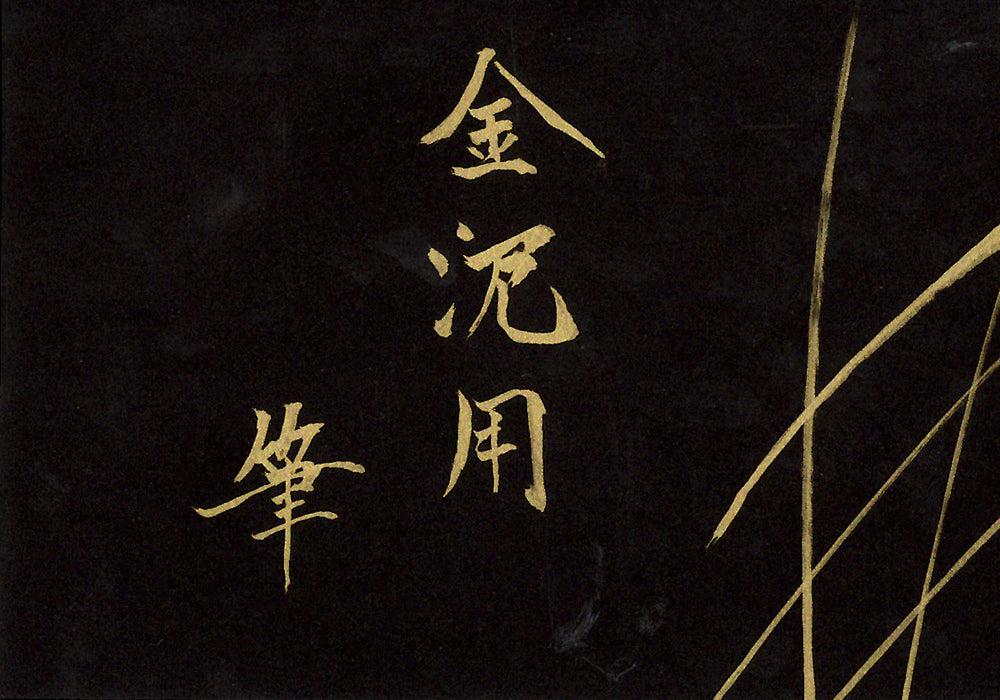 金泥用
筆